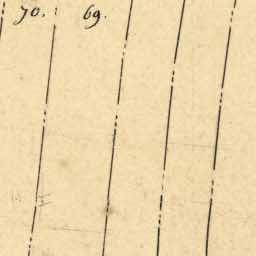 70. : 69.